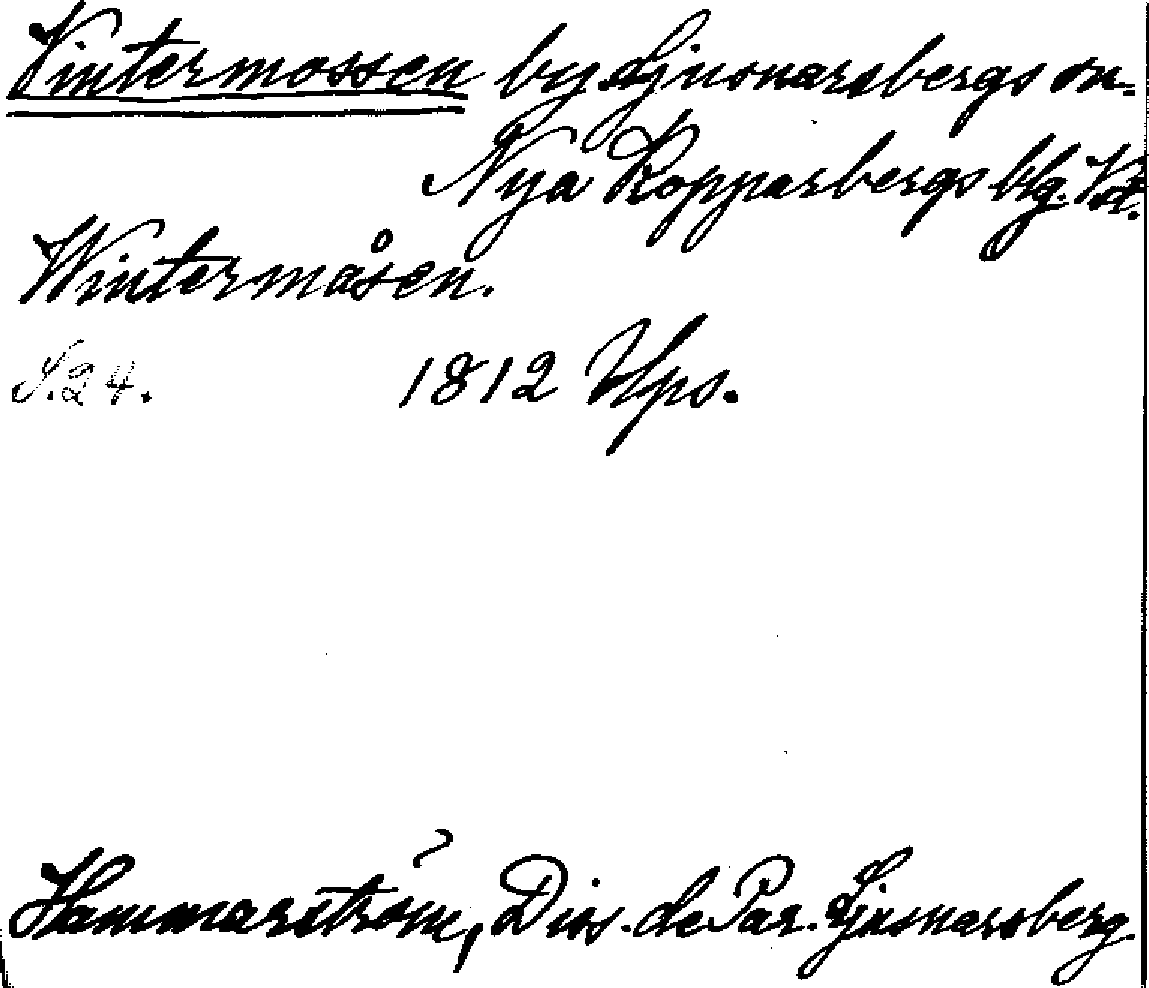 Vintermossen by Ljusnarsbergs sn.
Nya Kopparbergs blg. Vstm.
Wintermåsen.
S. 24. 1812 Ups.
Hammarström, Diss. de Par. Ljusnarsberg.